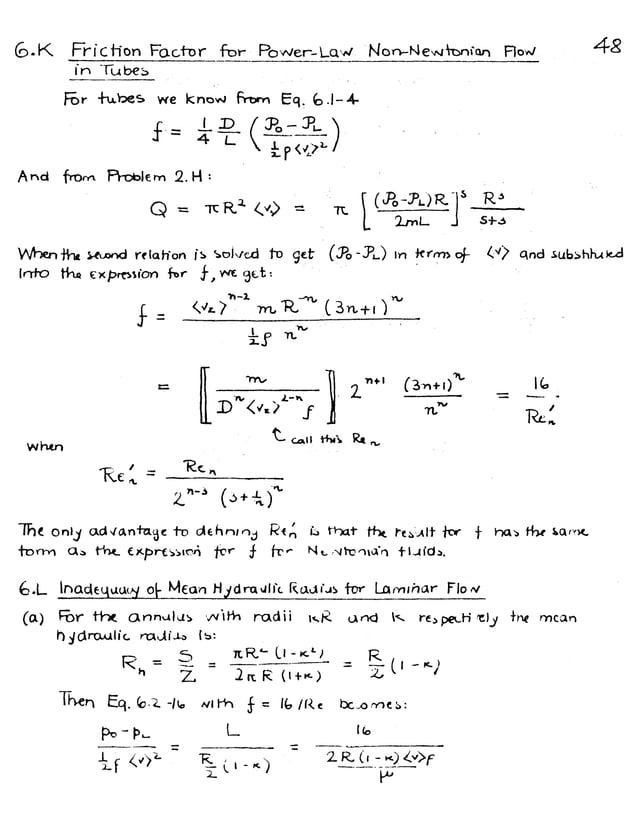 6.K Friction Factor for Power-Law Non-Newtonian Flow 48
in Tubes
For tubes we know from Eq. 6.1-4
f = 1/4 D/L ( (𝒫₀ - 𝒫_L) / (½ρ<v_z>²) )
And from Problem 2.H:
Q = πR² <v_z> = π [ (𝒫₀-𝒫_L)R / 2mL ]^s R^3 / (s+3)
When the second relation is solved to get (𝒫₀-𝒫_L) in terms of <v> and substituted
into the expression for f, we get:
f = <v_z>^(n-2) m R^(-n) (3n+1)^n / (½ρ n^n)
= [[ m / (D^n <v_z>^(2-n) ρ) ]] 2^(n+1) (3n+1)^n / n^n = 16 / Re'_n.
call this Re_n
when
Re'_n = Re_n / (2^(n-3) (3+1/n)^n)
The only advantage to defining Re'_n is that the result for f has the same
form as the expression for f for Newtonian fluids.
6.L Inadequacy of Mean Hydraulic Radius for Laminar Flow
(a) For the annulus with radii κR and R respectively the mean
hydraulic radius is:
R_h = S/Z = πR²(1-κ²) / 2πR(1+κ) = R/2 (1-κ)
Then Eq. 6.2-16 with f = 16/Re becomes:
(p₀-p_L) / (½ρ<v>²) = L / (R/2 (1-κ)) = 16 / (2R(1-κ)<v>ρ / μ)